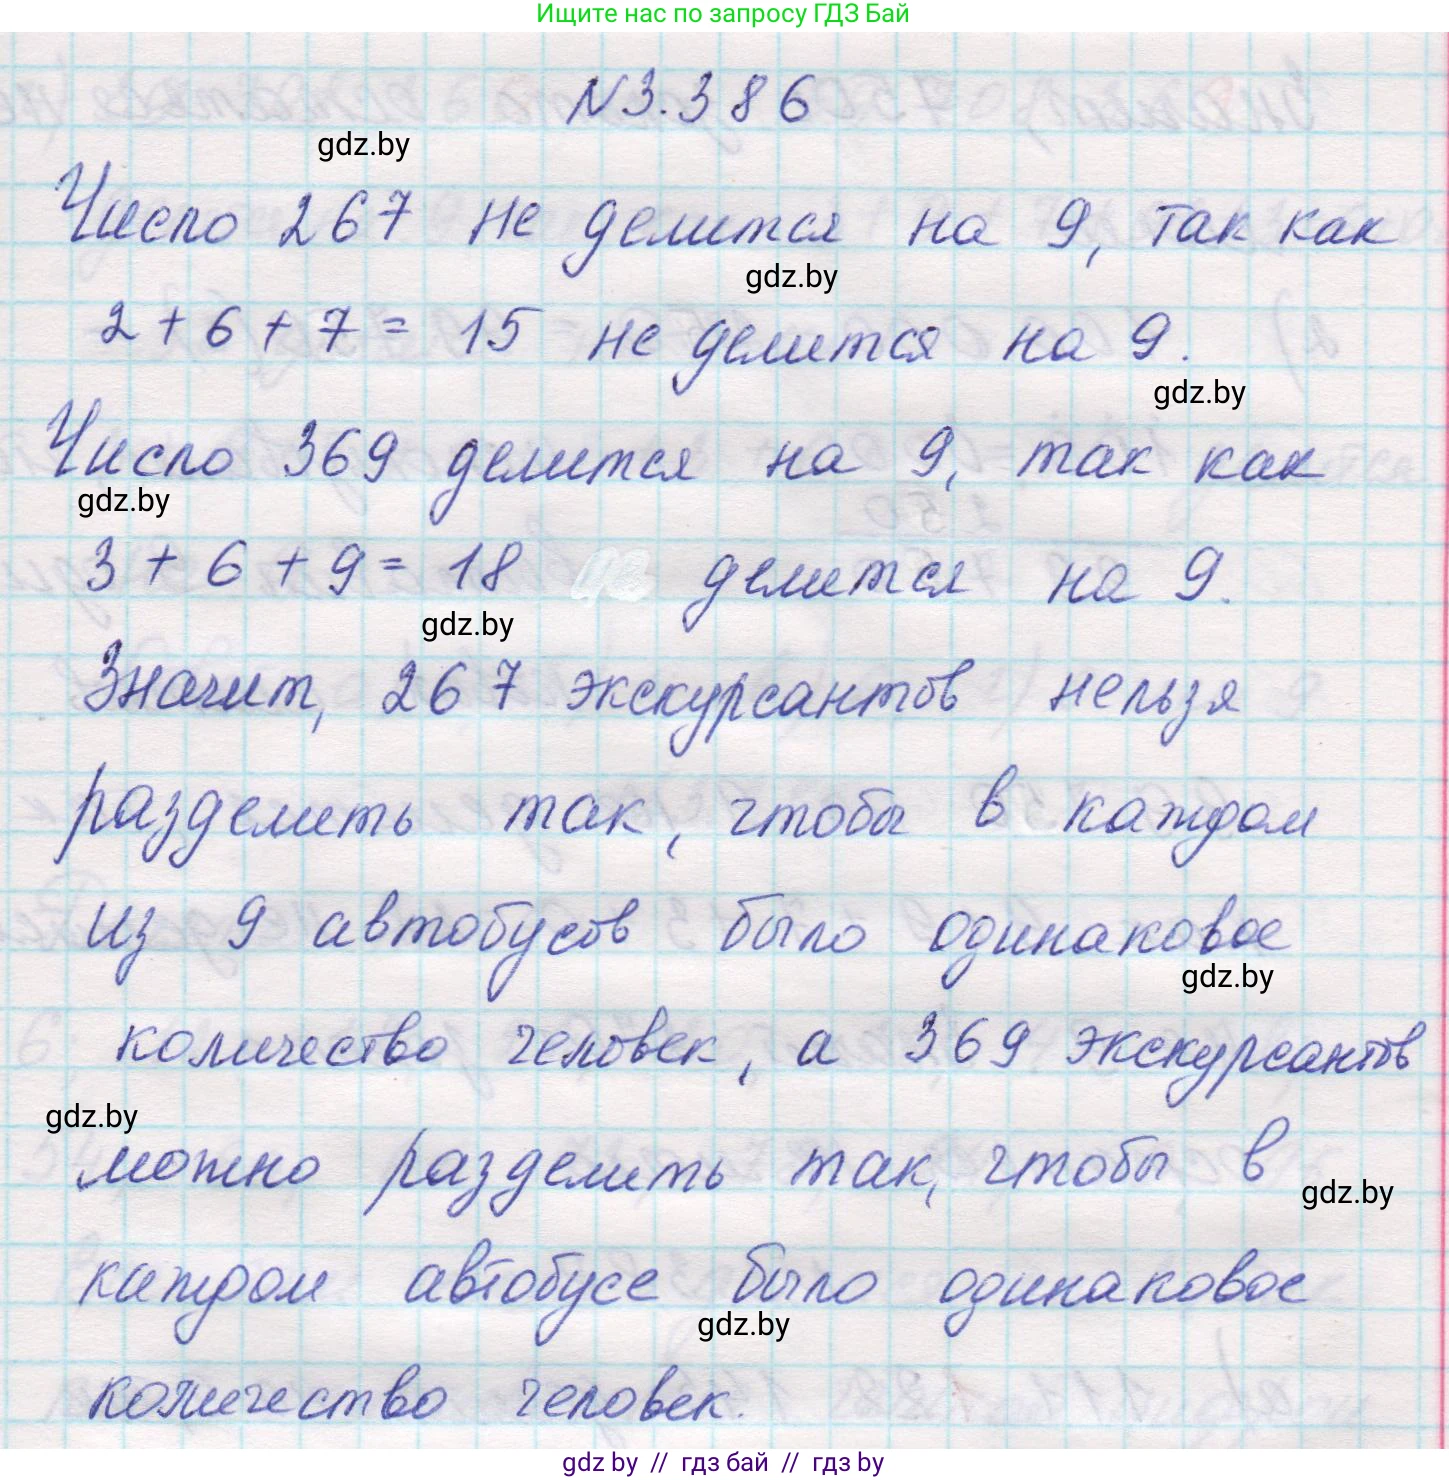 Ищите нас по запросу ГДЗ Бай
N3.386
gdz.by
Число 267 не делится на 9, так как
gdz.by
2 + 6 + 7 = 15 не делится на 9.
gdz.by
Число 369 делится на 9, так как
gdz.by
3 + 6 + 9 = 18 делится на 9.
gdz.by
Значит, 267 экскурсантов нельзя
разделить так, чтобы в каждом
из 9 автобусов было одинаковое
gdz.by
количество человек, а 369 экскурсантов
gdz.by
можно разделить так, чтобы в
gdz.by
каждом автобусе было одинаковое
gdz.by
количество человек.
gdz by // гдз бай // гдз by